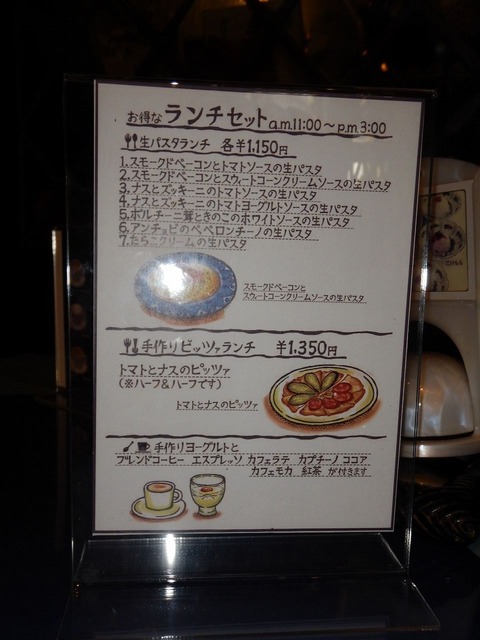 お得な ランチセット a.m.11:00～p.m.3:00
生パスタランチ 各¥1,150円
1.スモークドベーコンとトマトソースの生パスタ
2.スモークドベーコンとスウィートコーンクリームソースの生パスタ
3.ナスとズッキーニのトマトソースの生パスタ
4.ナスとズッキーニのトマトヨーグルトソースの生パスタ
5.ポルチーニ茸ときのこのホワイトソースの生パスタ
6.アンチョビのペペロンチーノの生パスタ
7.たらこクリームの生パスタ
スモークドベーコンと
スウィートコーンクリームソースの生パスタ
手作りピッツァランチ ¥1,350円
トマトとナスのピッツァ
(※ハーフ&ハーフです)
トマトとナスのピッツァ
手作りヨーグルトと
ブレンドコーヒー エスプレッソ カフェラテ カプチーノ ココア
カフェモカ 紅茶 が付きます